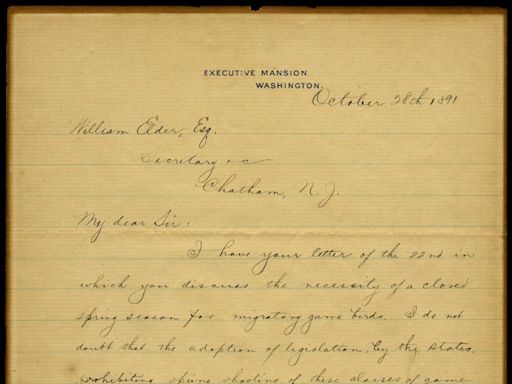 EXECUTIVE MANSION
WASHINGTON.
October 28th 1891
William Elder, Esq.
Secretary &c
Chatham, N. J.
My dear Sir:
I have your letter of the 22nd in
which you discuss the necessity of a closed
spring season for migratory game birds. I do not
doubt that the adoption of legislation, by the States,
prohibiting spring shooting of these classes of game